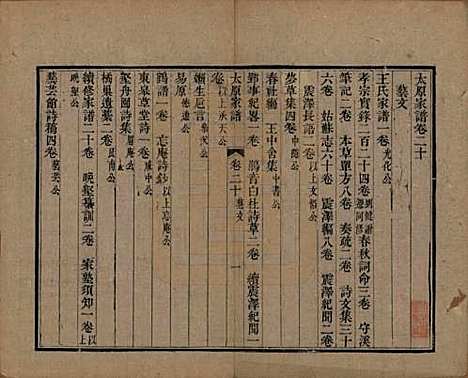 太原家譜卷二十
藝文
王氏家譜一卷 光化公
孝宗實錄二百二十四卷 春秋詞命三卷 守溪
筆記二卷 本草單方八卷 奏疏二卷 詩文集三十
六卷 姑蘇志六十卷 震澤編八卷 震澤紀聞二卷
震澤長語二卷 以上文恪公
夢草集四卷 中隱公
春社編 王中舍集 中書公
鄞事紀畧一卷 鵑音白社詩草二卷 續震澤紀聞一
太原家譜 卷二十 藝文 一
卷 以上承天公
嬾生巵言
易原
鶴譜一卷 忘庵詩鈔 以上忘庵公
東皋草堂詩
墊舟園詩集
橘巢遺藁二卷 艮南公
續修家譜二十卷 晚翠藁 訓二卷 家塾須知一卷 以上
晚翠公
藝芸館詩稿四卷 藝芸公